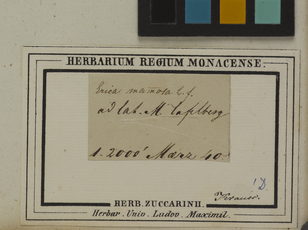 HERBARIUM REGIUM MONACENSE
Erica mamosa L. f.
ad lat. M. Tafelberg
1-2000' Maerz 40.
'D.
Krauss.
HERB. ZUCCARINII.
Herbar. Univ. Ludov. Maximil.